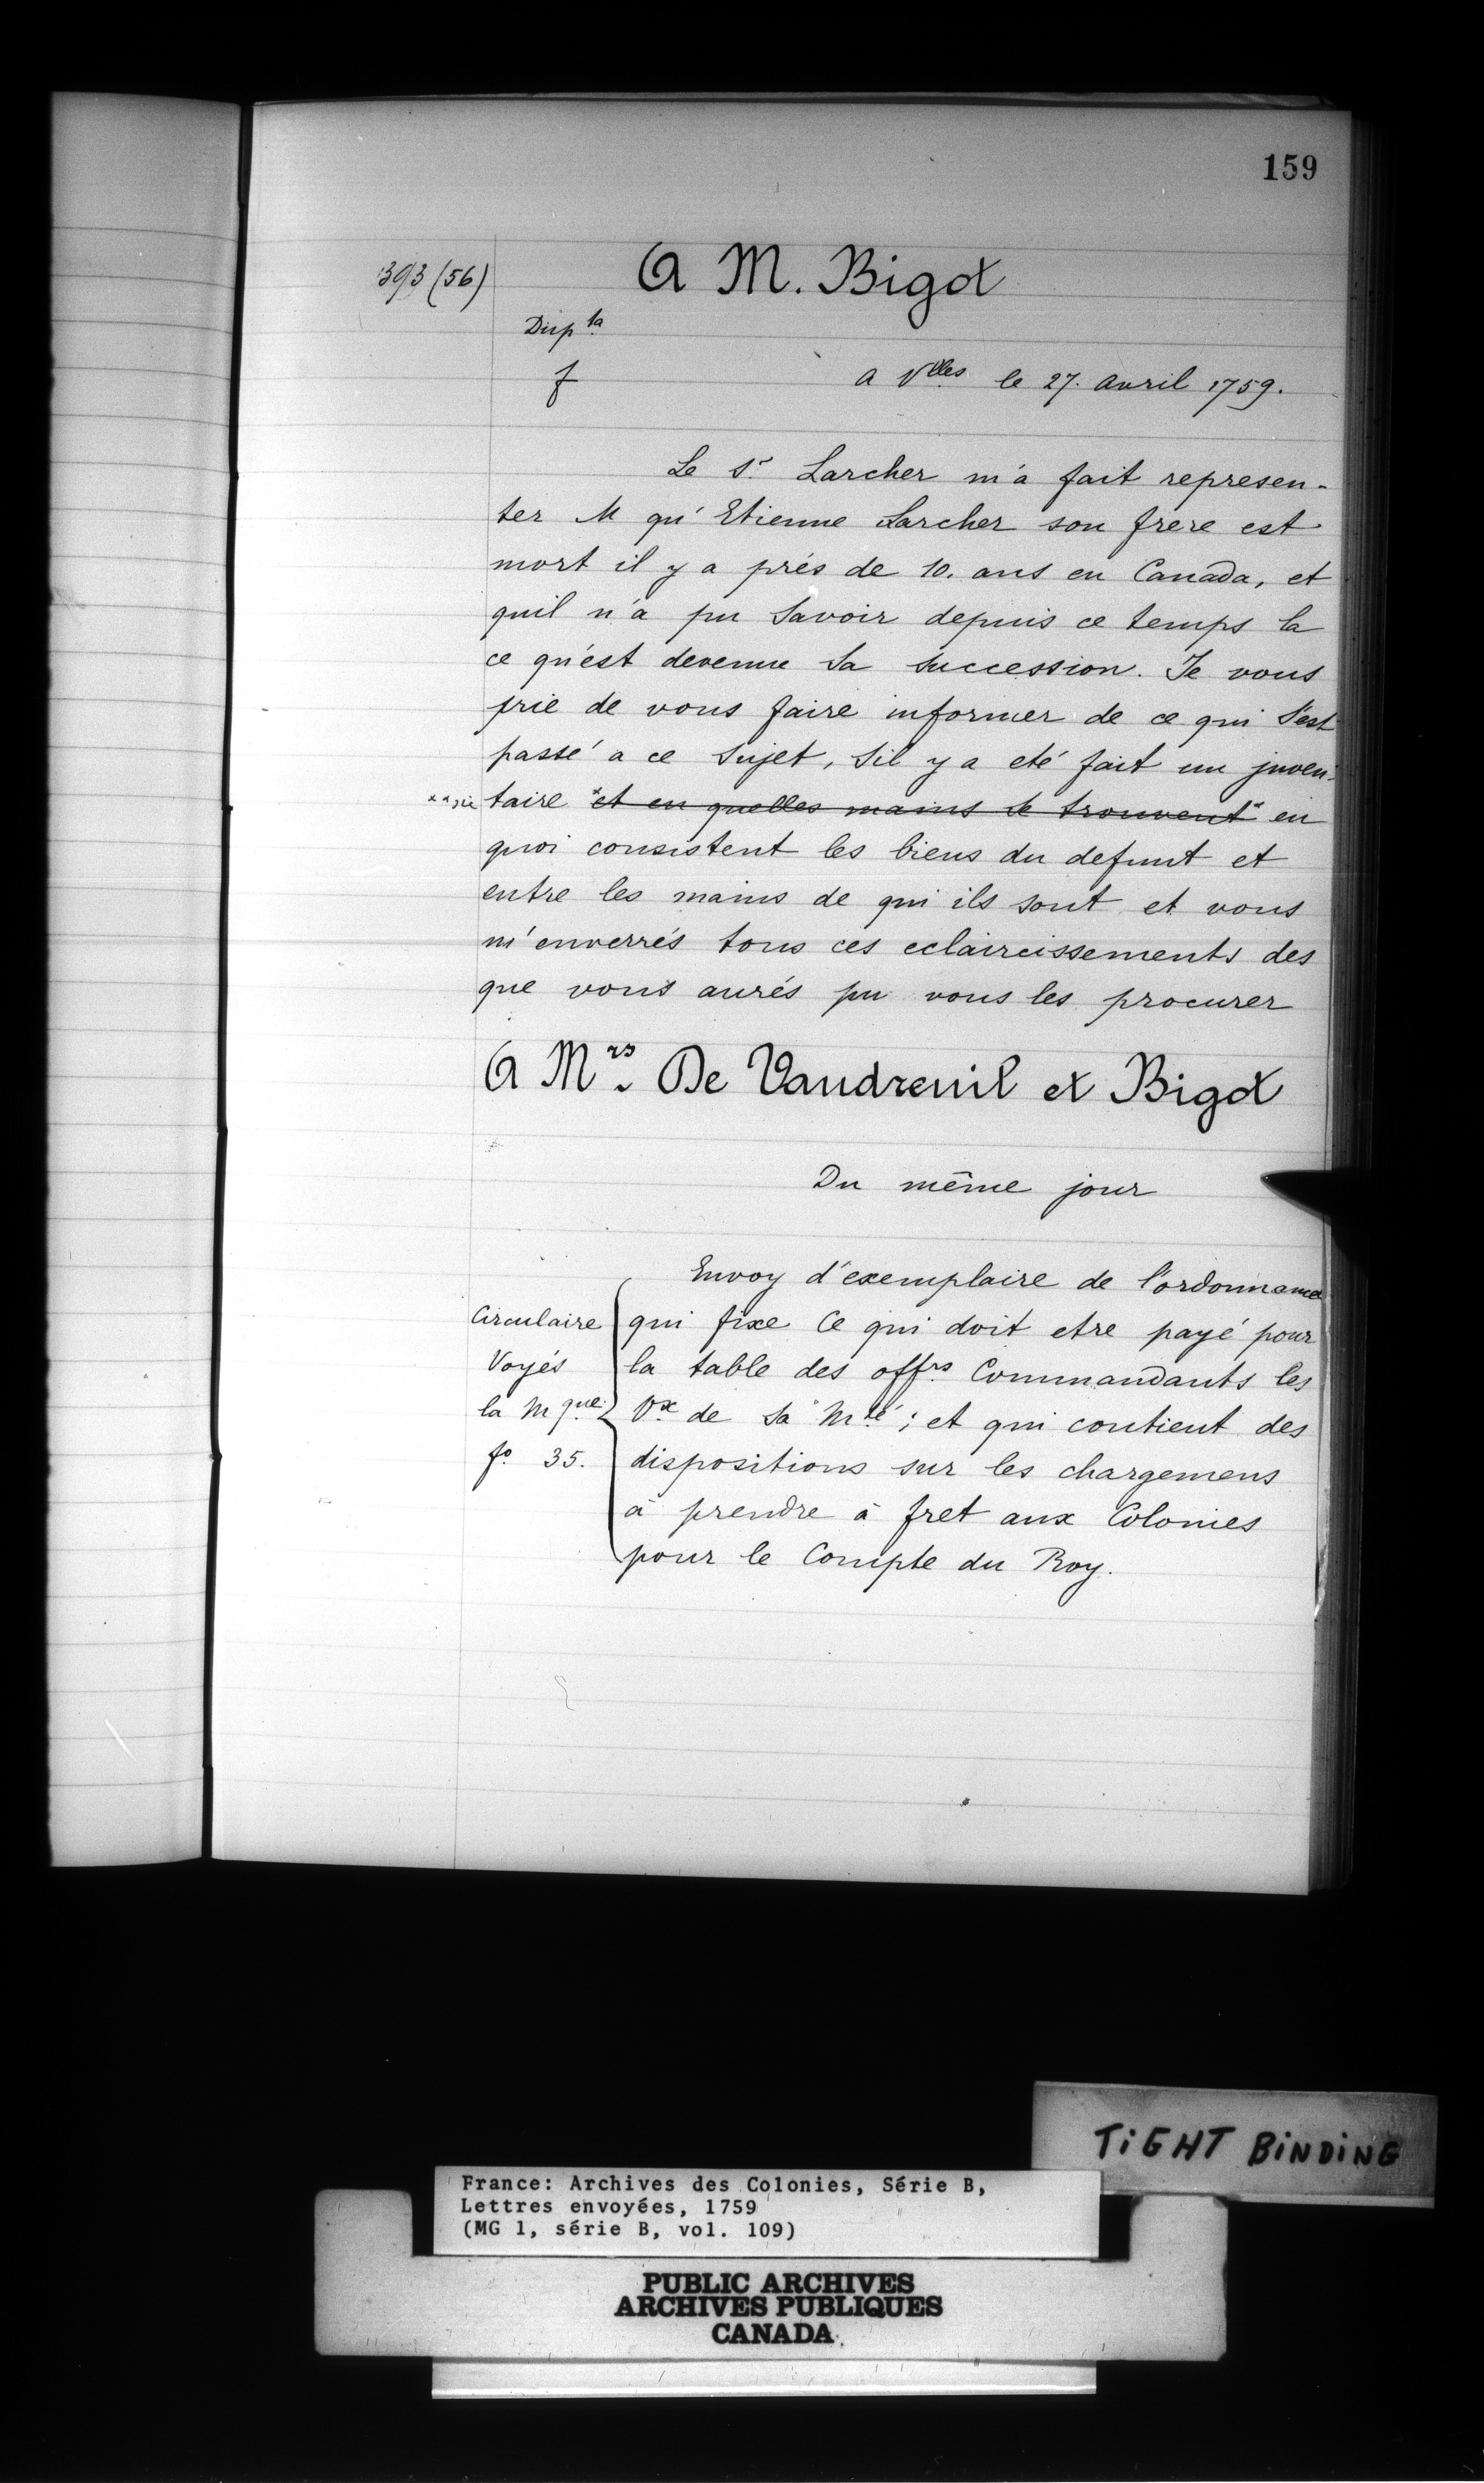 159
393 (56)
A M. Bigot
Dup ta
f
a Vlles le 27. Avril 1759.
Le Sr Larcher m'a fait represen-
ter M qu'Etienne Larcher son frere est
mort il y a prés de 10. ans en Canada, et
quil n'a pu Savoir depuis ce temps la
ce qu'est devenue Sa Succession. Je vous
prie de vous faire informer de ce qui S'est
passé a ce Sujet, Sil y a eté fait un inven-
taire "et en quelles mains se trouvent" en
quoi consistent les biens du defunt et
entre les mains de qui ils sont et vous
m'enverrés tous ces eclaircissements des
que vous aurés pu vous les procurer
A Mrs De Vaudreuil et Bigot
Du même jour
Envoy d'exemplaire de l'ordonnance
Circulaire qui fixe Ce qui doit etre payé pour
Voyés la table des offrs Commandants les
la Mque Vx de Sa Mté ; et qui contient des
fo 35. dispositions sur les chargemens
à prendre à fret aux Colonies
pour le Compte du Roy.
TiGHT BiNDiNG
France: Archives des Colonies, Série B,
Lettres envoyées, 1759
(MG 1, série B, vol. 109)
PUBLIC ARCHIVES
ARCHIVES PUBLIQUES
CANADA